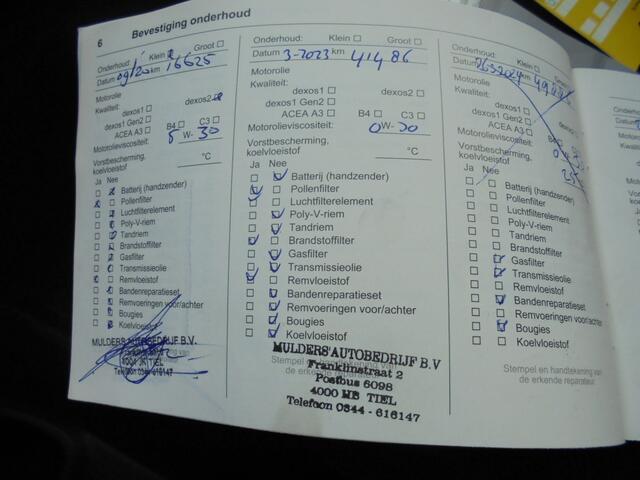 6 Bevestiging onderhoud
Onderhoud: Klein Groot
Datum km 16625
Motorolie
Kwaliteit:
dexos1 dexos2
dexos1 Gen2
ACEA A3 B4 C3
Motorolieviscositeit: 5 W- 30
Vorstbescherming, koelvloeistof °C
Ja Nee
Batterij (handzender)
Pollenfilter
Luchtfilterelement
Poly-V-riem
Tandriem
Brandstoffilter
Gasfilter
Transmissieolie
Remvloeistof
Bandenreparatieset
Remvoeringen voor/achter
Bougies
Koelvloeistof
MULDERS AUTOBEDRIJF B.V.
4004 JK TIEL
Telefoon 0344-616147
Onderhoud: Klein Groot
Datum 3-2023 km 41486
Motorolie
Kwaliteit:
dexos1 dexos2
dexos1 Gen2
ACEA A3 B4 C3
Motorolieviscositeit: 0 W- 20
Vorstbescherming, koelvloeistof °C
Ja Nee
Batterij (handzender)
Pollenfilter
Luchtfilterelement
Poly-V-riem
Tandriem
Brandstoffilter
Gasfilter
Transmissieolie
Remvloeistof
Bandenreparatieset
Remvoeringen voor/achter
Bougies
Koelvloeistof
MULDERS AUTOBEDRIJF B.V
Stempel en handtekening van
de erkende reparateur
Franklinstraat 2
Postbus 6098
4000 HB TIEL
Telefoon 0344 - 616147
Onderhoud: Klein
Datum km
Motorolie
Kwaliteit:
dexos1
dexos1 Gen2
ACEA A3
Motorolieviscositeit:
Vorstbescherming,
koelvloeistof
Ja Nee
Batterij (handzender)
Pollenfilter
Luchtfilterelement
Poly-V-riem
Tandriem
Brandstoffilter
Gasfilter
Transmissieolie
Remvloeistof
Bandenreparatieset
Remvoeringen voor/achter
Bougies
Koelvloeistof
Stempel en handtekening van
de erkende reparateur